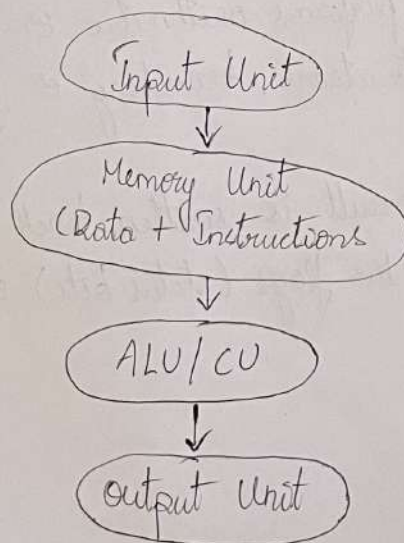 Input Unit
Memory Unit
(Data + Instructions
ALU/CU
Output Unit